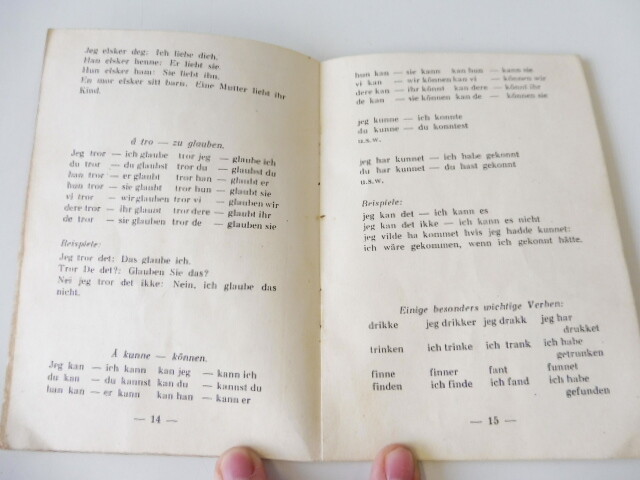 Jeg elsker deg: Ich liebe dich.
Han elsker henne: Er liebt sie
Hun elsker ham: Sie liebt ihn.
En mor elsker sitt barn. Eine Mutter liebt ihr
Kind.
å tro — zu glauben.
Jeg tror — ich glaube tror jeg — glaube ich
du tror — du glaubst tror du — glaubst du
han tror — er glaubt tror han — glaubt er
hun tror — sie glaubt tror hun — glaubt sie
vi tror — wir glauben tror vi — glauben wir
dere tror — ihr glaubt tror dere — glaubt ihr
de tror — sie glauben tror de — glauben sie
Beispiele:
Jeg tror det: Das glaube ich.
Tror De det?: Glauben Sie das?
Nei jeg tror det ikke: Nein, ich glaube das
nicht.
Å kunne — können.
Jeg kan — ich kann kan jeg — kann ich
du kan — du kannst kan du — kannst du
han kan — er kann kan han — kann er
— 14 —
hun kan — sie kann kan hun — kann sie
vi kan — wir können kan vi — können wir
dere kan — ihr könnt kan dere — könnt ihr
de kan — sie können kan de — können sie
jeg kunne — ich konnte
du kunne — du konntest
u.s.w.
jeg har kunnet — ich habe gekonnt
du har kunnet — du hast gekonnt
u.s.w.
Beispiele:
jeg kan det — ich kann es
jeg kan det ikke — ich kann es nicht
jeg vilde ha kommet hvis jeg hadde kunnet:
ich wäre gekommen, wenn ich gekonut hätte.
Einige besonders wichtige Verben:
drikke jeg drikker jeg drakk jeg har
drukket
trinken ich trinke ich trank ich habe
getrunken
finne finner fant funnet
finden ich finde ich fand ich habe
gefunden
— 15 —